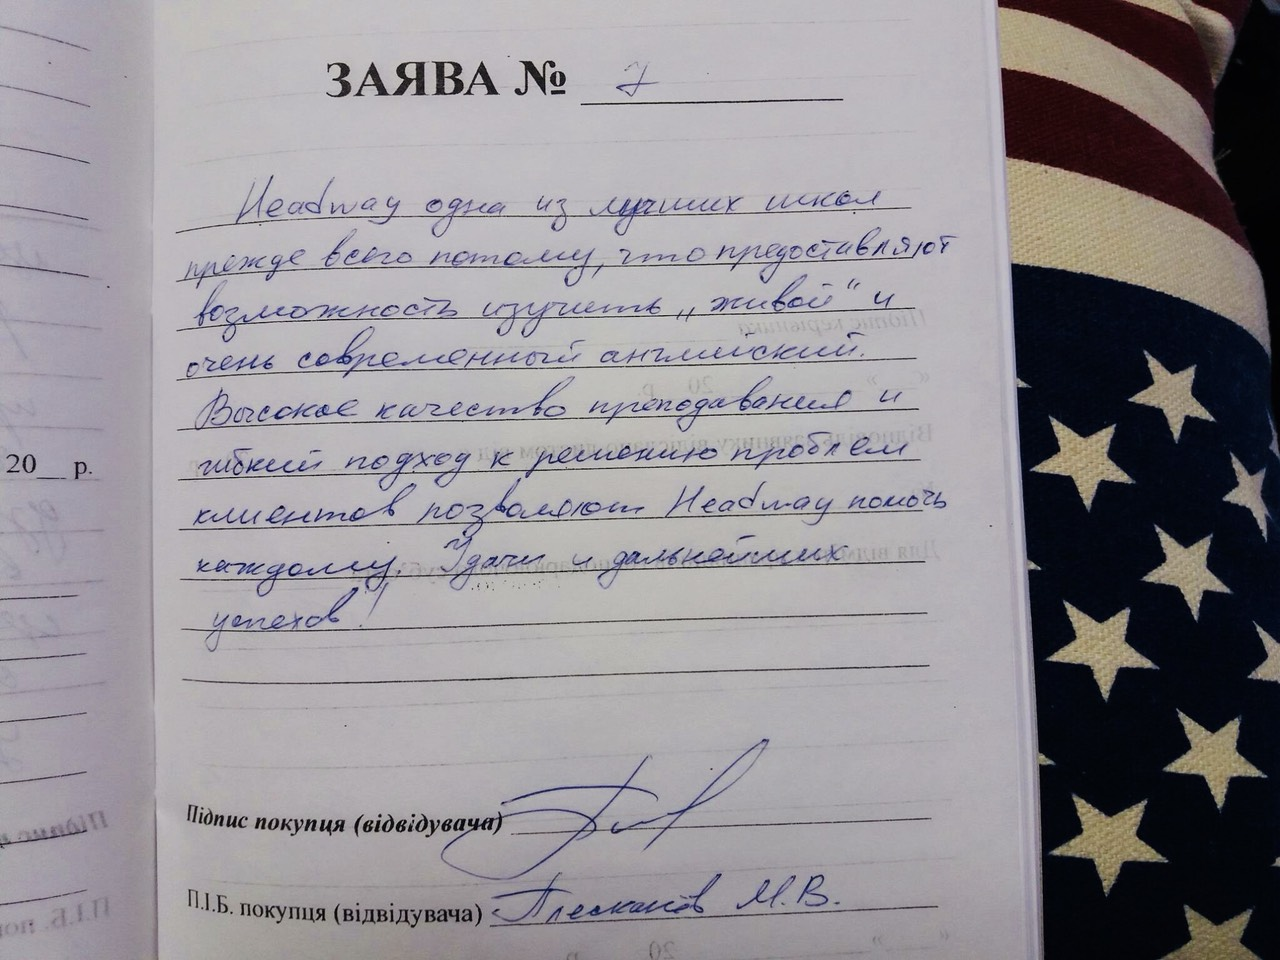 ЗАЯВА № 7
Headway одна из лучших школ
прежде всего потому, что предоставляют
возможность изучить „живой" и
очень современный английский.
Высокое качество преподавания и
гибкий подход к решению проблем
клиентов позволяют Headway помочь
каждому. Удачи и дальнейших
успехов!
20__ р.
Підпис покупця (відвідувача)
П.І.Б. покупця (відвідувача) Плеканов М.В.